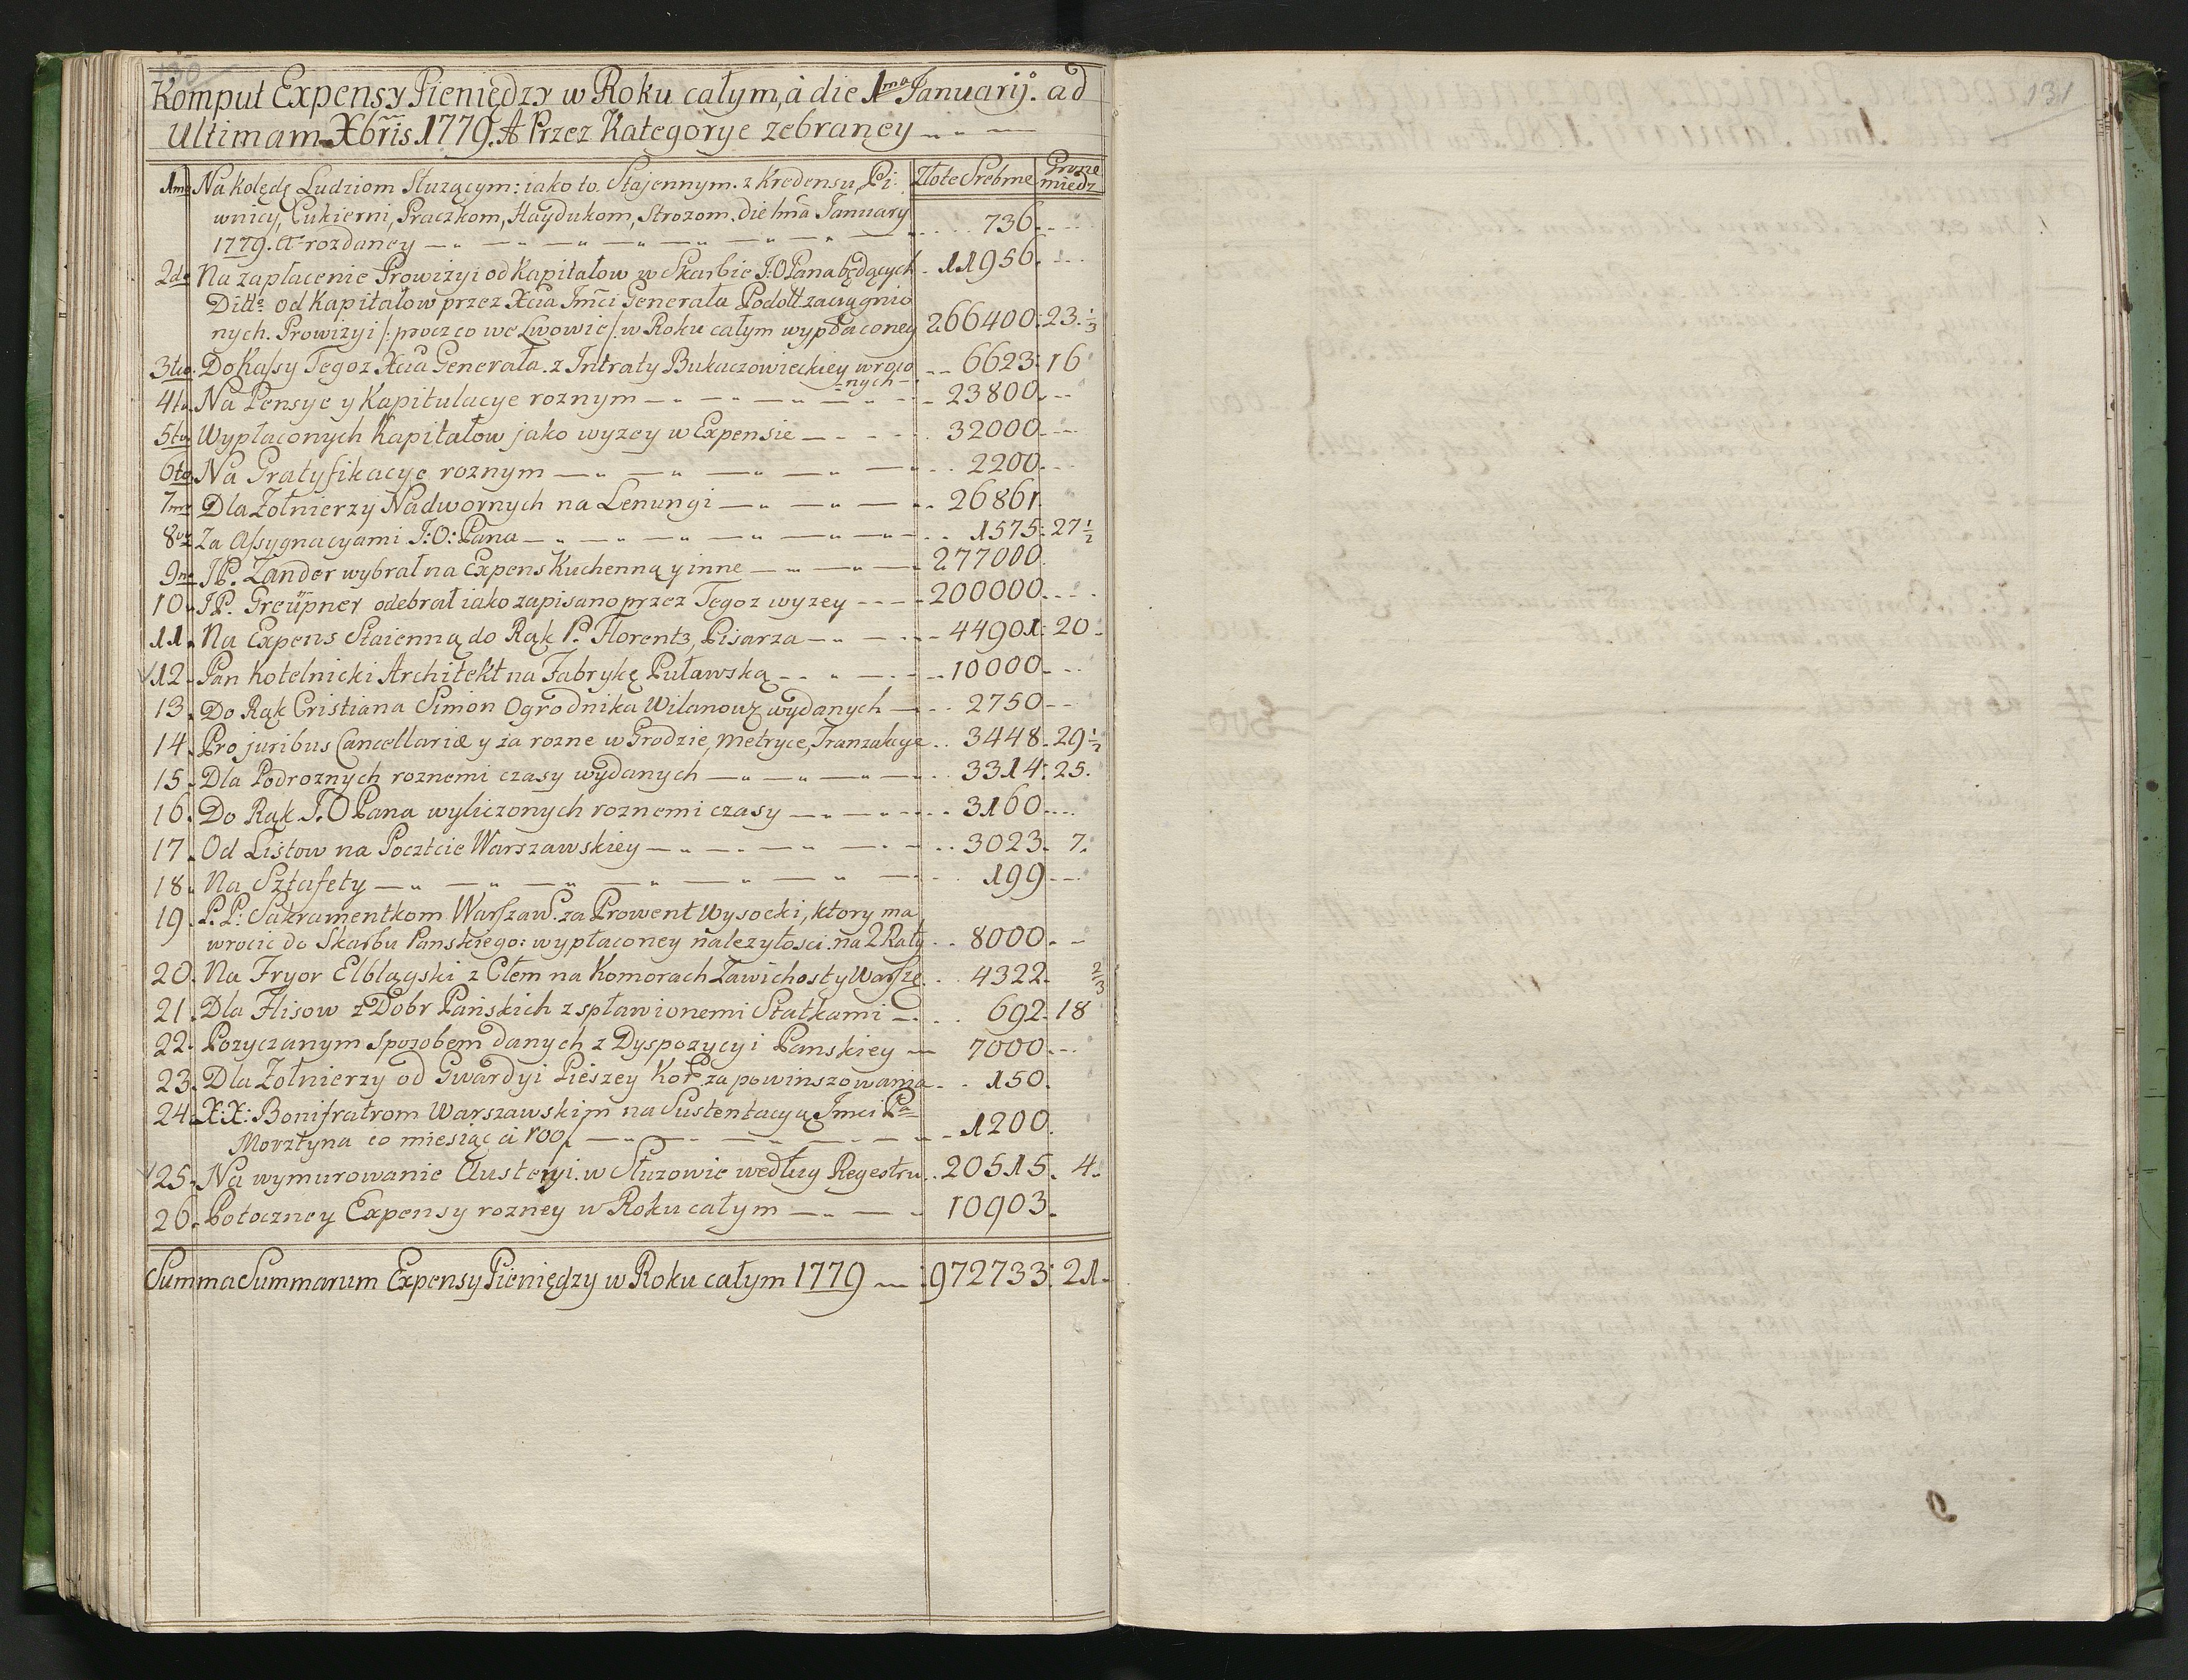 130
Komput Expensy Pieniędzy w Roku całym, à die 1ma Januarij. ad
Ultimam Xbris 1779. A Przez Kategorye zebraney
Złote Srebrne Grosze miedz
1mo Na Kolędę Ludziom Służącym: iako to. Stajennym. z Kredensu, Pi-
wnicy, Cukierni, Praczkom, Haydukom, Strozom. die 1ma January 736.
1779. A rozdaney
2do Na zapłacenie Prowizyi od Kapitałow w Skarbie J:O Pana będących 11956.
Ditto od Kapitałow przez Xcia Jmci Generała Podoll zaciągnio
nych. Prowizyi /: procz co we Lwowie /. w Roku całym wypłaconey 266400: 23. 1/3
3tio. Do Kassy Tegoz Xcia Generała. z Intraty Bukaczowieckiey wroco 6623: 16
nych
4to. Na Pensye y Kapitulacye roznym 23800.
5to. Wypłaconych Kapitałow jako wyzey w Expensie 32000.
6to. Na Gratyfikacye roznym 2200.
7mo Dla Żołnierzy Nadwornych na Lenungi 26861.
8vo Za Assygnacyami J:O: Pana 1575: 27 1/2
9no JP. Zander wybrał na Expens Kuchenną y inne 277000.
10. JP. Greüpner odebrał iako zapisano przez Tegoz wyzey 200000.
11. Na Expens Staienną do Rąk P. Florentz, Pisarza 44901: 20
12. Pan Kotelnicki Architekt na Fabrykę Puławską 10000.
13. Do Rąk Cristiana Simon Ogrodnika Wilanow. wydanych 2750
14. Pro juribus Cancellariæ y za rozne w Grodzie, Metryce, Tranzakcye 3448. 29 1/2
15. Dla Podroznych roznemi czasy wydanych 3314: 25.
16. Do Rąk J.O Pana wyliczonych roznemi czasy 3160.
17. Od Listow na Poczcie Warszawskiey 3023. 7.
18. Na Sztafety 199
19. P.P: Sakramentkom Warszaw. za Prowent Wysocki, ktory ma
wrocic do Skarbu Panskiego: wypłaconey nalezytosci. na 2 Raty 8000.
20. Na Fryor Elblągski z Cłem na Komorach Zawichosty Warsze. 4322. 2/3
21. Dla Flisow z Dobr Pańskich z spławionemi Statkami 692. 18
22. Pozyczanym Sposobem danych z Dyspozycyi Panskiey 7000.
23. Dla Żołnierzy od Gwardyi Pieszey Kor. za powinszowania 150.
24. X:X: Bonifratrom Warszawskim na Sustentacyą Jmci Pa
Morztyna co miesiąc à 100/. 1200.
25. Na wymurowanie Austeryi. w Słuzowie według Regestru 20515. 4.
26. Potoczney Expensy rozney w Roku całym 10903.
Summa Summarum Expensy Pieniędzy w Roku całym 1779 972733: 21.
131